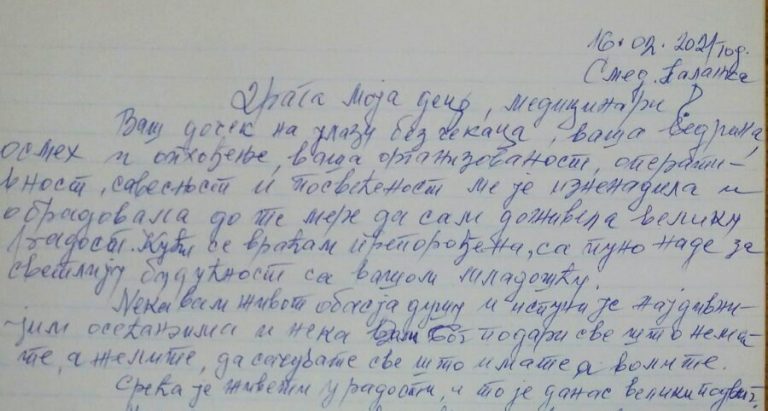 16.02.2021 год.
Смед. Паланка
Драга моја децо, медицинари!
Ваш дочек на улазу без чекања, ваша ведрина,
осмех и опхођење, ваша организованост, операти-
вност, савесност и посвећеност ме је изненадила и
обрадовала до те мере да сам доживела велику
радост. Кући се враћам препорођена, са пуно наде за
светлију будућност са вашом младошћу.
Нека вам живот обасја душу и испуни је најдивни-
јим осећањима и нека вам Бог подари све што нема-
те, а желите, да сачувате све што имате а волите.
Срећа је живети у радости, и то је данас велики подвиг,